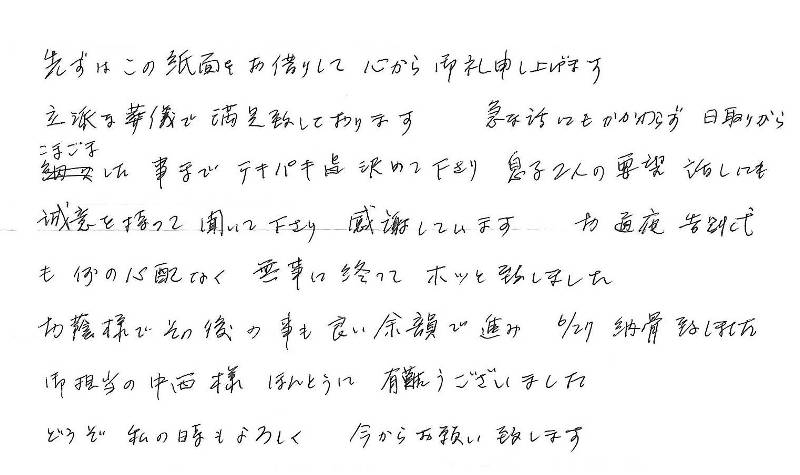 先ずはこの紙面をお借りして 心から御礼申し上げます
立派な葬儀で満足致しております 急な話にもかかわらず 日取りから
こまごま
した 事まで テキパキ 決めて下さり 息子2人の要望 話しにも
誠意を持って聞いて下さり 感謝しています お通夜 告別式
も 何の心配なく 無事に終って ホッと致しました
お蔭様でその後の事も良い余韻で進み 6/27 納骨致しました
御担当の中西様 ほんとうに 有難うございました
どうぞ 私の時もよろしく 今からお願い致します